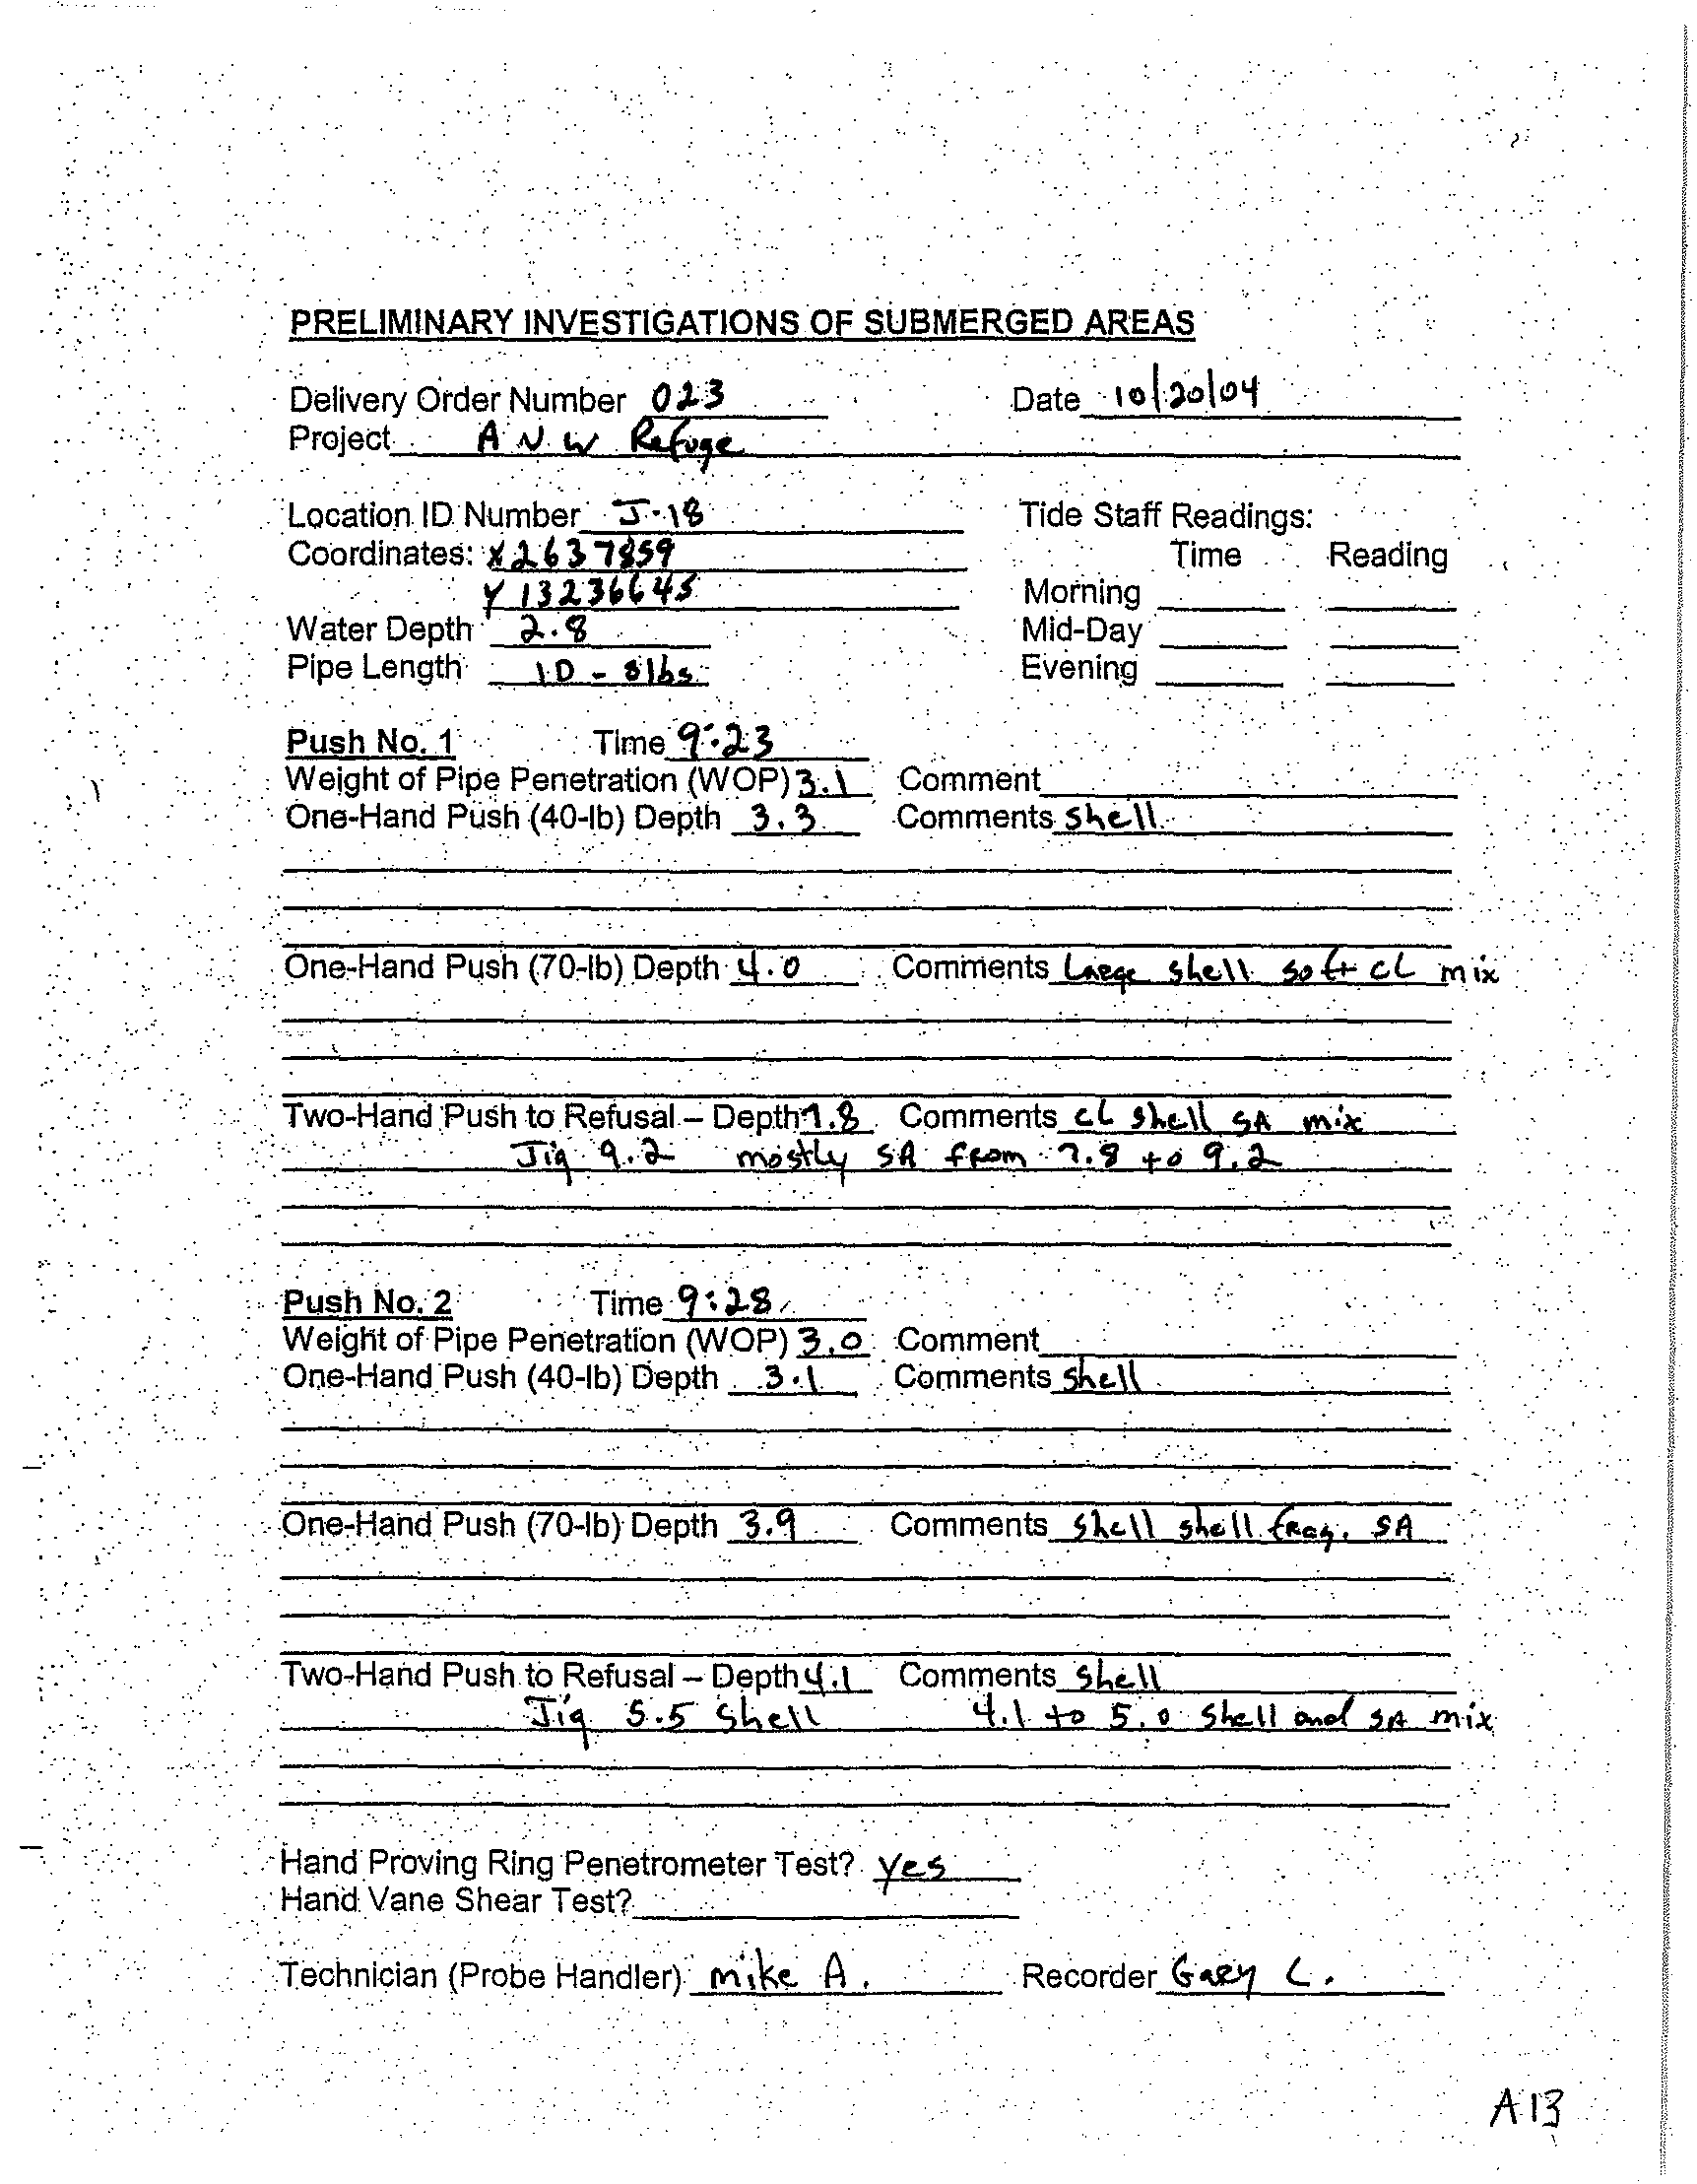 PRELIMINARY INVESTIGATIONS OF SUBMERGED AREAS
Delivery Order Number 023 Date 10/20/04
Project A N W Refuge
Location ID Number J-18 Tide Staff Readings:
Coordinates: X 2637859 Time Reading
Y 13236645 Morning
Water Depth 2.8 Mid-Day
Pipe Length 10 - 8lbs Evening
Push No. 1 Time 9:23
Weight of Pipe Penetration (WOP) 3.1 Comment
One-Hand Push (40-lb) Depth 3.3 Comments shell
One-Hand Push (70-lb) Depth 4.0 Comments Large shell soft CL mix
Two-Hand Push to Refusal – Depth 7.8 Comments CL shell SA mix
Jig 9.2 mostly SA from 7.8 to 9.2
Push No. 2 Time 9:28
Weight of Pipe Penetration (WOP) 3.0 Comment
One-Hand Push (40-lb) Depth 3.1 Comments shell
One-Hand Push (70-lb) Depth 3.9 Comments shell shell frag. SA
Two-Hand Push to Refusal – Depth 4.1 Comments shell
Jig 5.5 shell 4.1 to 5.0 shell and SA mix
Hand Proving Ring Penetrometer Test? yes
Hand Vane Shear Test?
Technician (Probe Handler) mike A. Recorder Gary L.
A13